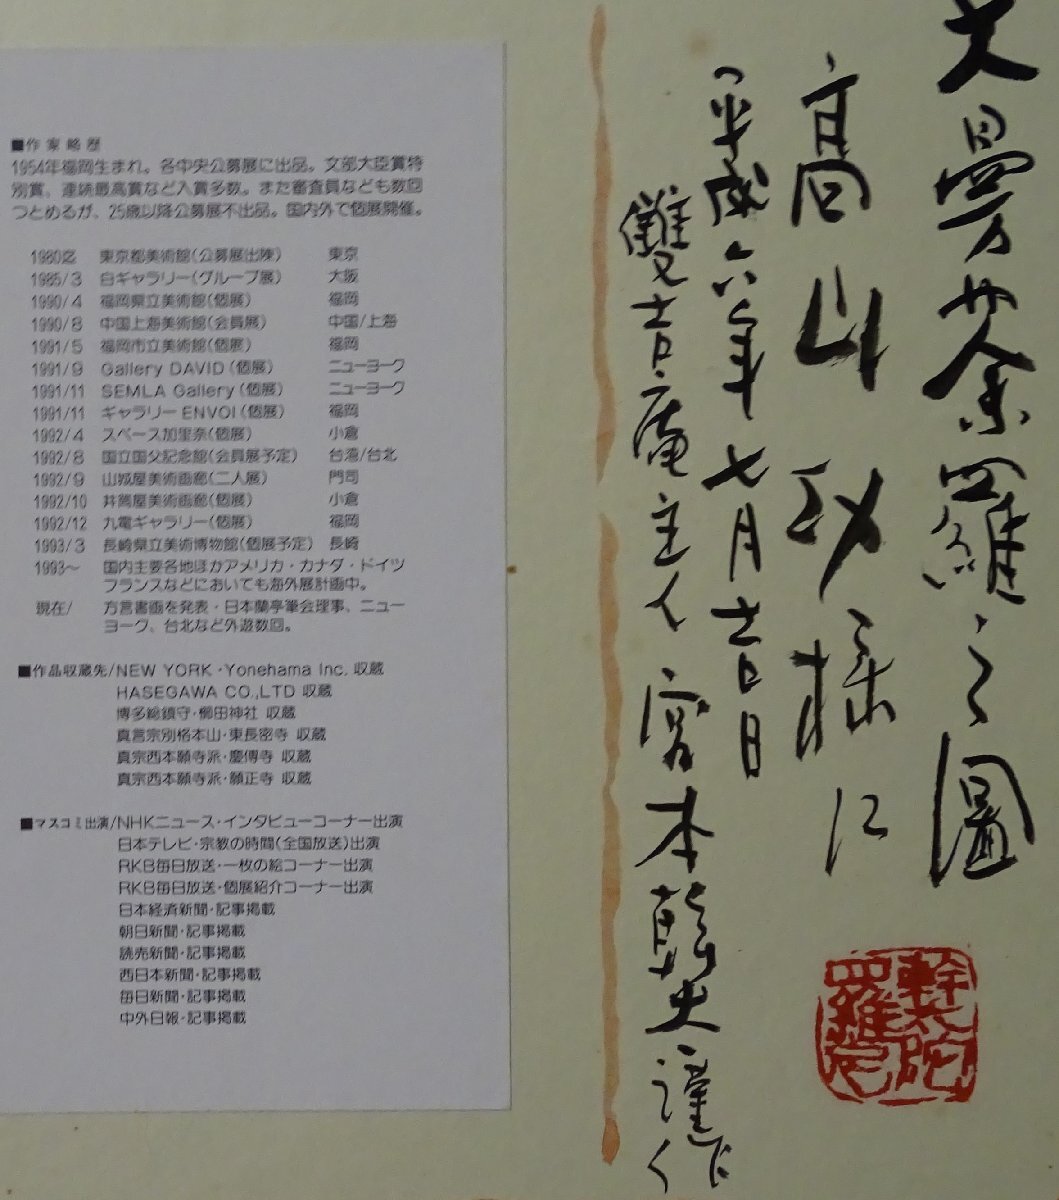 ■作家略歴
1954年福岡生まれ。各中央公募展に出品。文部大臣賞特
別賞、連続最高賞など入賞多数。また審査員なども数回
つとめるが、25歳以降公募展不出品。国内外で個展開催。
1980迄 東京都美術館(公募展出陳) 東京
1985/3 白ギャラリー(グループ展) 大阪
1990/4 福岡県立美術館(個展) 福岡
1990/8 中国上海美術館(会員展) 中国/上海
1991/5 福岡市立美術館(個展) 福岡
1991/9 Gallery DAVID(個展) ニューヨーク
1991/11 SEMLA Gallery(個展) ニューヨーク
1991/11 ギャラリーENVOI(個展) 福岡
1992/4 スペース加里奈(個展) 小倉
1992/8 国立国父記念館(会員展予定) 台湾/台北
1992/9 山城屋美術画廊(二人展) 門司
1992/10 井筒屋美術画廊(個展) 小倉
1992/12 九電ギャラリー(個展) 福岡
1993/3 長崎県立美術博物館(個展予定) 長崎
1993〜 国内主要各地ほかアメリカ・カナダ・ドイツ
フランスなどにおいても海外展計画中。
現在/ 方言書画を発表・日本蘭亭筆会理事、ニュー
ヨーク、台北など外遊数回。
■作品収蔵先/NEW YORK・Yonehama Inc. 収蔵
HASEGAWA CO.,LTD 収蔵
博多総鎮守・櫛田神社 収蔵
真言宗別格本山・東長密寺 収蔵
真宗西本願寺派・慶傳寺 収蔵
真宗西本願寺派・願正寺 収蔵
■マスコミ出演/NHKニュース・インタビューコーナー出演
日本テレビ・宗教の時間(全国放送)出演
RKB毎日放送・一枚の絵コーナー出演
RKB毎日放送・個展紹介コーナー出演
日本経済新聞・記事掲載
朝日新聞・記事掲載
読売新聞・記事掲載
西日本新聞・記事掲載
毎日新聞・記事掲載
中外日報・記事掲載
大曼荼羅之圖
高山 様に
平成六年七月吉日
雙吉庵主人 宮本